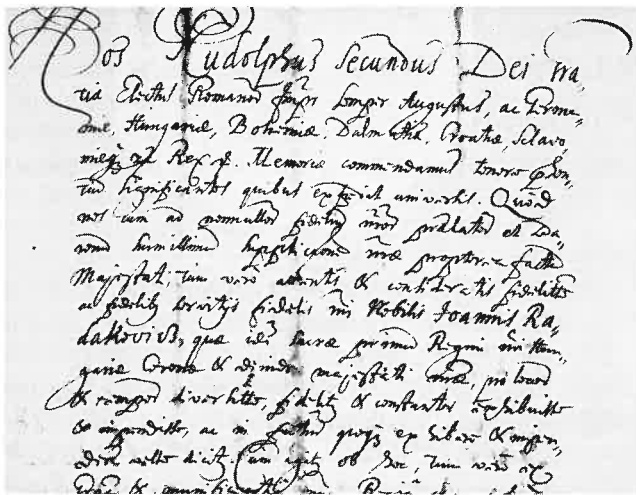 Nos Rudolphus Secundus Dei gra,
tia Electus Romanor Impr semper Augustus, ac Germa,
niæ, Hungariæ, Bohemiæ, Dalmatiæ, Croatiæ, Sclavo,
niæq Rex &. Memoriæ commendamus tenore præsen,
tium significantes quibus expedit universis. Quod
nos cum ad nonnullor fidelium nror prælator et Ba,
ronum humillimam supplicationem nræ propterea factam
Majestati; tum vero attentis, & consideratis fidelitate
ac fidelibus servitijs fidelis nri Nobilis Joannis Ra,
dakovich, quæ is sacræ primum Regni nri Hun,
gariæ Coronæ & deinde majestati nræ, pro locor
& tempor diversitate, fideliter & constanter exhibuisse
& impendisse, ac in futurum quoq exhibere & impen,
dere velle dicit. Cum ob hoc, tum vero ex